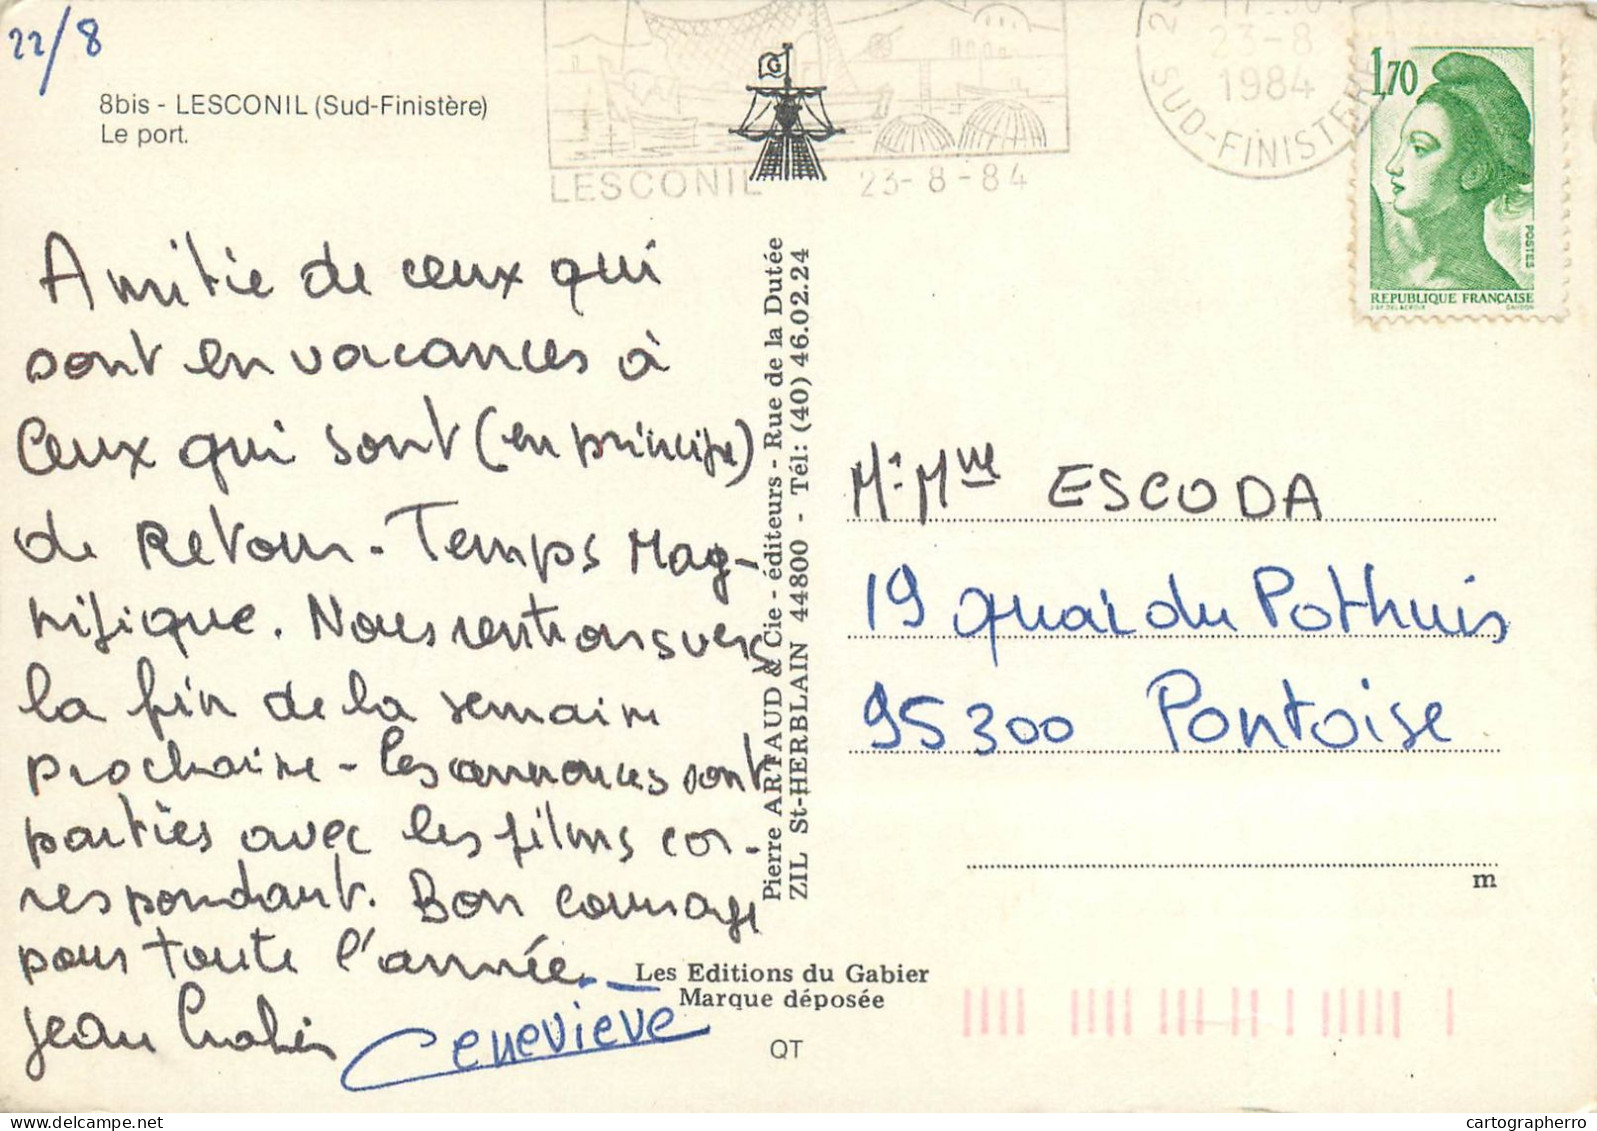 22/8
8bis - LESCONIL (Sud-Finistère)
Le port.
G
LESCONIL 23-8-84
23-8
1984
SUD-FINISTERE
1,70
POSTES
REPUBLIQUE FRANÇAISE
Amitié de ceux qui
sont en vacances à
Ceux qui sont (en principe)
de Retour - Temps Mag-
nifique. Nous rentrons vers
la fin de la semaine
prochaine - les annonces sont
parties avec les films cor-
respondant. Bon courage
pour toute l'année.
Jean
Geneviève
Pierre ARTAUD & Cie - éditeurs - Rue de la Dutée
ZIL St-HERBLAIN 44800 - Tél: (40) 46.02.24
Mr Mme ESCODA
19 quai du Pothuis
95300 Pontoise
m
Les Editions du Gabier
Marque déposée
QT
cartographerro